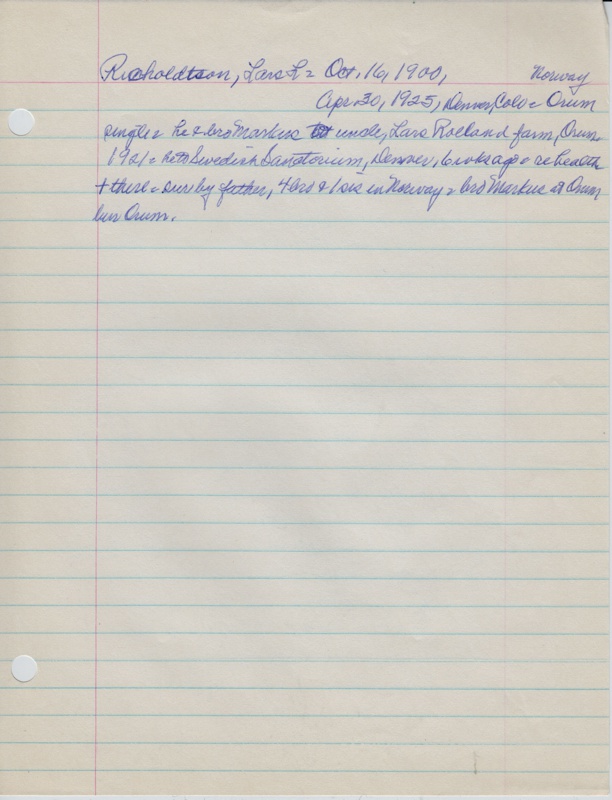 Racholdtson, Lars L = Oct. 16, 1900, Norway
Apr. 30, 1925, Denver, Colo = Orum
single = he & bro Markus to uncle, Lars Roeland farm, Orum
1921 = he to Swedish Sanatorium, Denver, 6 wks ago = re health
+ there = sur by father, 4 bro & 1 sis in Norway = bro Markus at Orum
bur Orum.